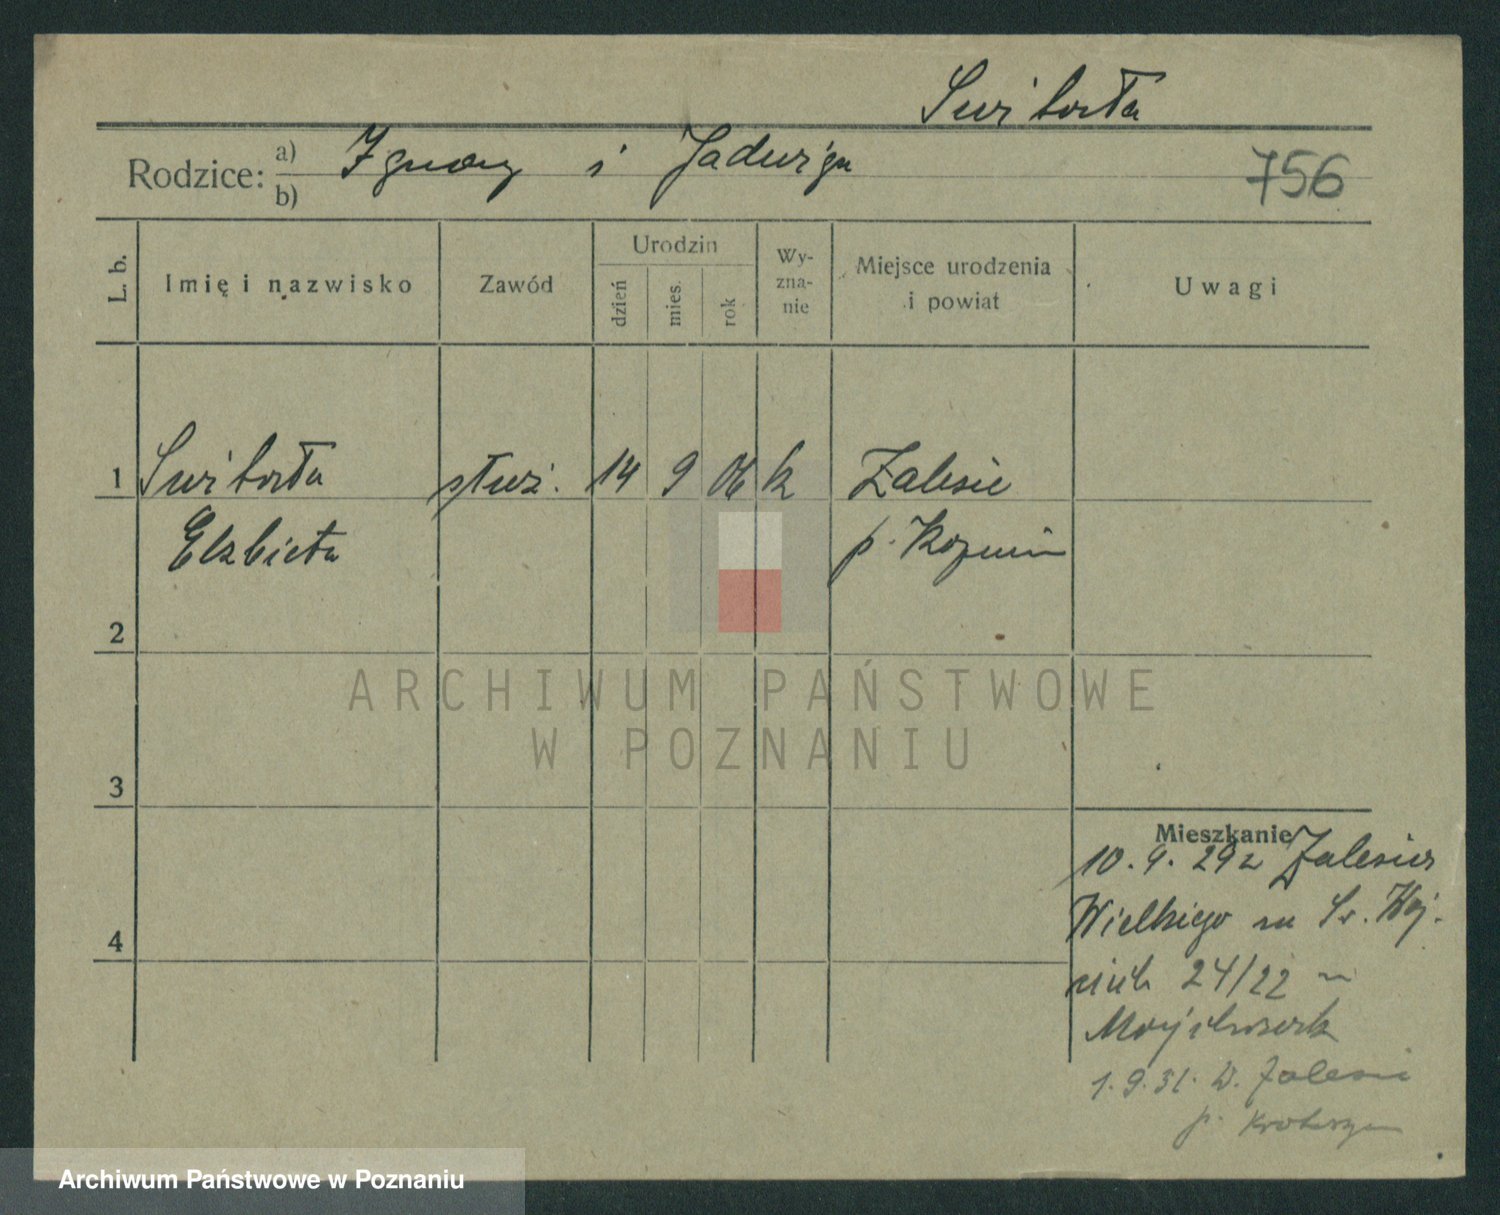 Switorła
Rodzice: a) Ignacy i Jadwiga
b)
756
L. b.
Imię i nazwisko
Zawód
Urodzin
dzień
mies.
rok
Wy-
zna-
nie
Miejsce urodzenia
i powiat
Uwagi
1 Switorła służ. 14 9 06 k Zalesie
Elżbieta p. Kozmin
2
ARCHIWUM PAŃSTWOWE
W POZNANIU
3
Mieszkanie
10. 9. 29 z Zalesia
Wielkiego
24/22
4
1. 9. 31. W. Zalesie
p. Krotoszyn
Archiwum Państwowe w Poznaniu